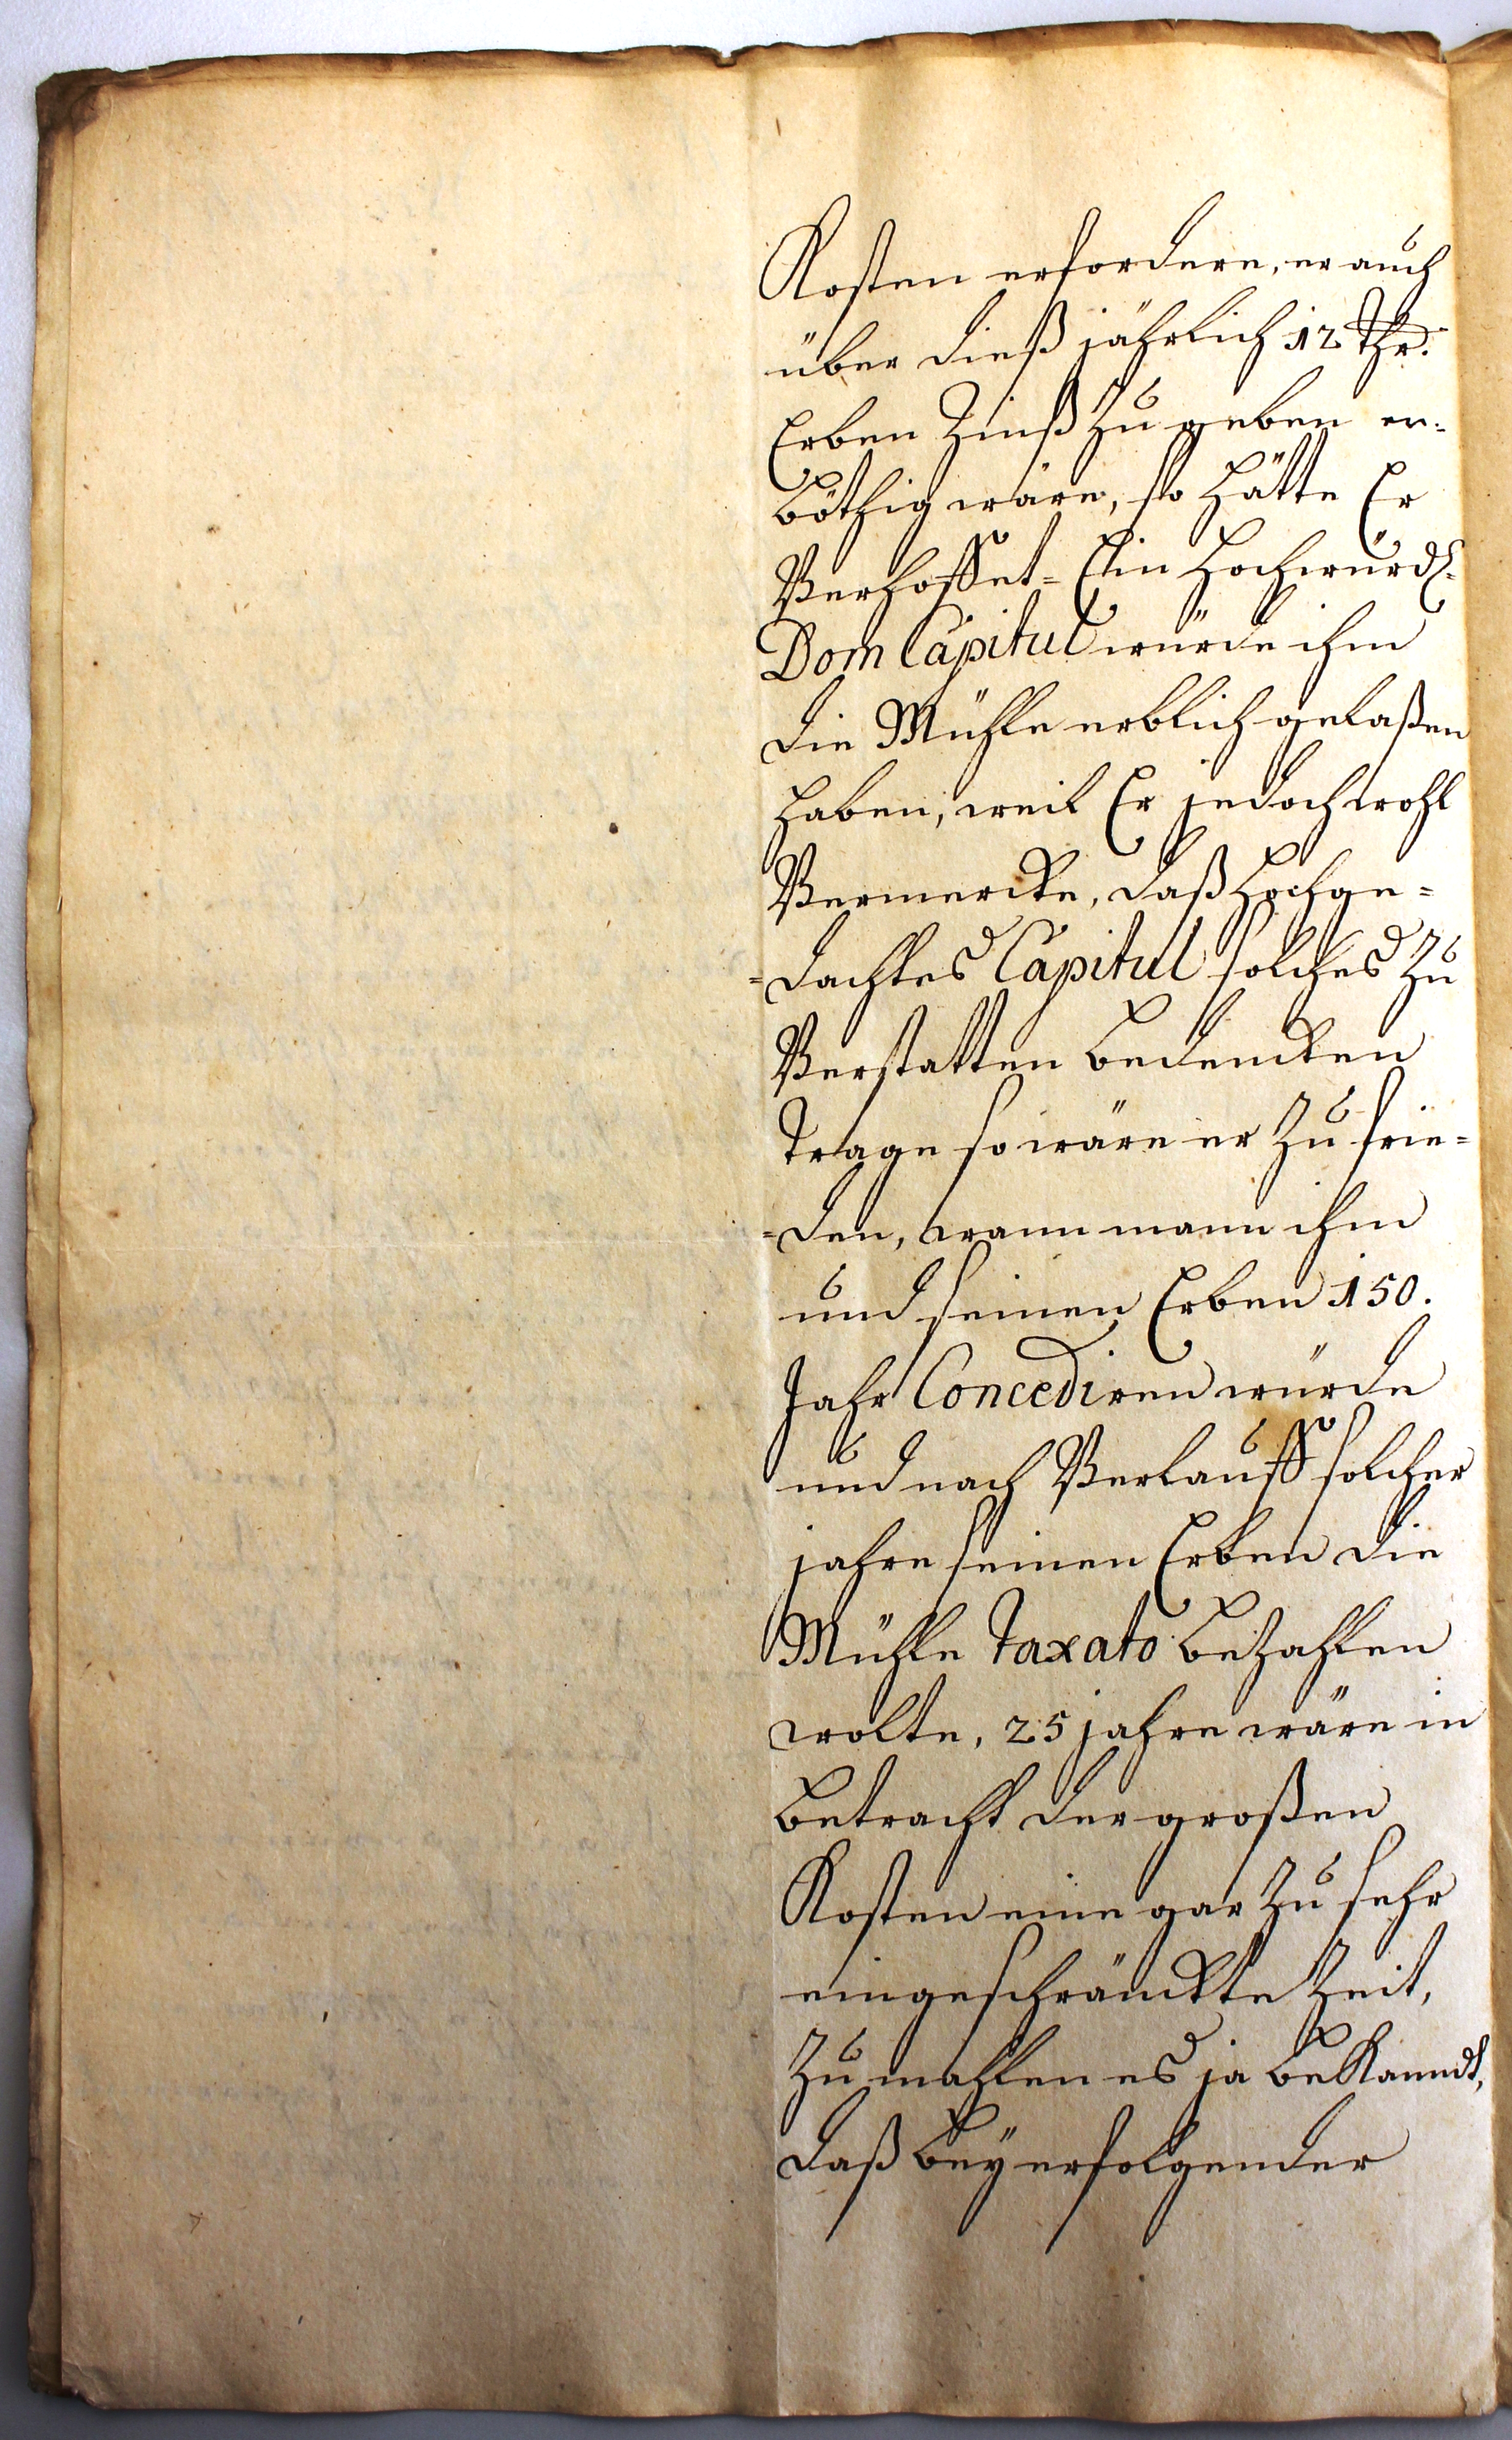 Kosten erfordere, er auch
über dieß jährlich 12 Thr.
Erben Zinß zu geben er=
böthig wäre, so hätte Er
Verhoffet= Ein Hochwürdl.
Dom Capitul würde ihm
die Mühle erblich gelaßen
haben, weil Er jedoch wohl
Vermercke, daß Hochge=
=dachtes Capitul solches zu
Verstatten bedencken
Trage so wäre er zu frie=
=den, wann mann ihm
und seinen Erben 150.
Jahr Concediren würde
und nach Verlauff solcher
jahre seinen Erben die
Mühle taxato bezahlen
wolte, 25 jahre wäre in
betracht der großen
Kosten eine gar zu sehr
eingeschränckte Zeit,
zu mahlen es ja beKanndt,
daß bey erfolgender